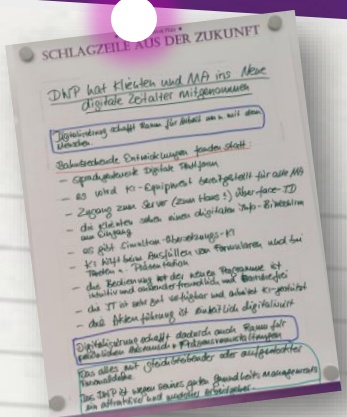 SCHLAGZEILE AUS DER ZUKUNFT
DWP hat Klienten und MA ins Neue
digitale Zeitalter mitgenommen
Digitalisierung schafft Raum für Arbeit mit dem
Menschen.
Bahnbrechende Entwicklungen fanden statt:
- Digitale Plattform
- es wird KI-Equipment bereitgestellt für alle MA
- Zugang zum Server (zum Haus!) über face-ID
- die Klienten sehen einen digitalen Info-Bildschirm
am Eingang
- es gibt Simultan-Übersetzungs-KI
- KI hilft beim Ausfüllen von Formularen und bei
Präsentation
- die Bedienung der neuen Programme ist
intuitiv und anwenderfreundlich und
- die IT ist sehr gut verfügbar und arbeitet KI-gestützt
- die Aktenführung ist einheitlich digitalisiert
Digitalisierung schafft dadurch auch Raum für
persönlichen Austausch +
Das alles mit gleichbleibender oder aufgestockter
Das DWP ist wegen seines guten Gesundheitsmanagements
ein attraktiver und